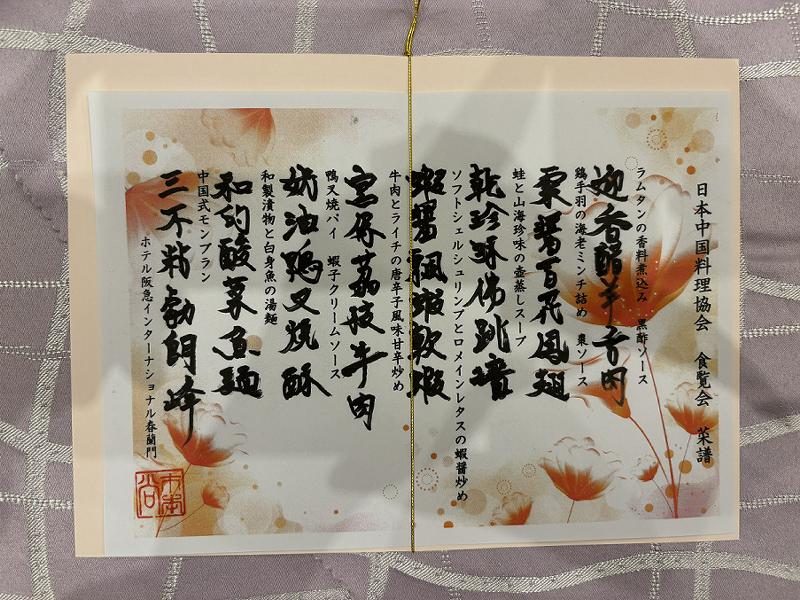 日本中国料理協会 食覧会 菜譜
ラムタンの香料煮込み 黒酢ソース
迎香醋羊舌肉
鶏手羽の海老ミンチ詰め ソース
醤百花鳳翅
蛙と山海珍味の壺蒸しスープ
乾珍酥佛跳墻
ソフトシェルシュリンプとロメインレタスの蝦醤炒め
蝦醤 軟蝦
牛肉とライチの唐辛子風味甘辛炒め
宮保荔枝牛肉
鴨叉焼パイ 蝦子クリームソース
奶油鴨叉焼酥
和製漬物と白身魚の湯麺
和 酸菜魚麺
中国式モンブラン
三不粘勃朗峰
ホテル阪急インターナショナル春蘭門